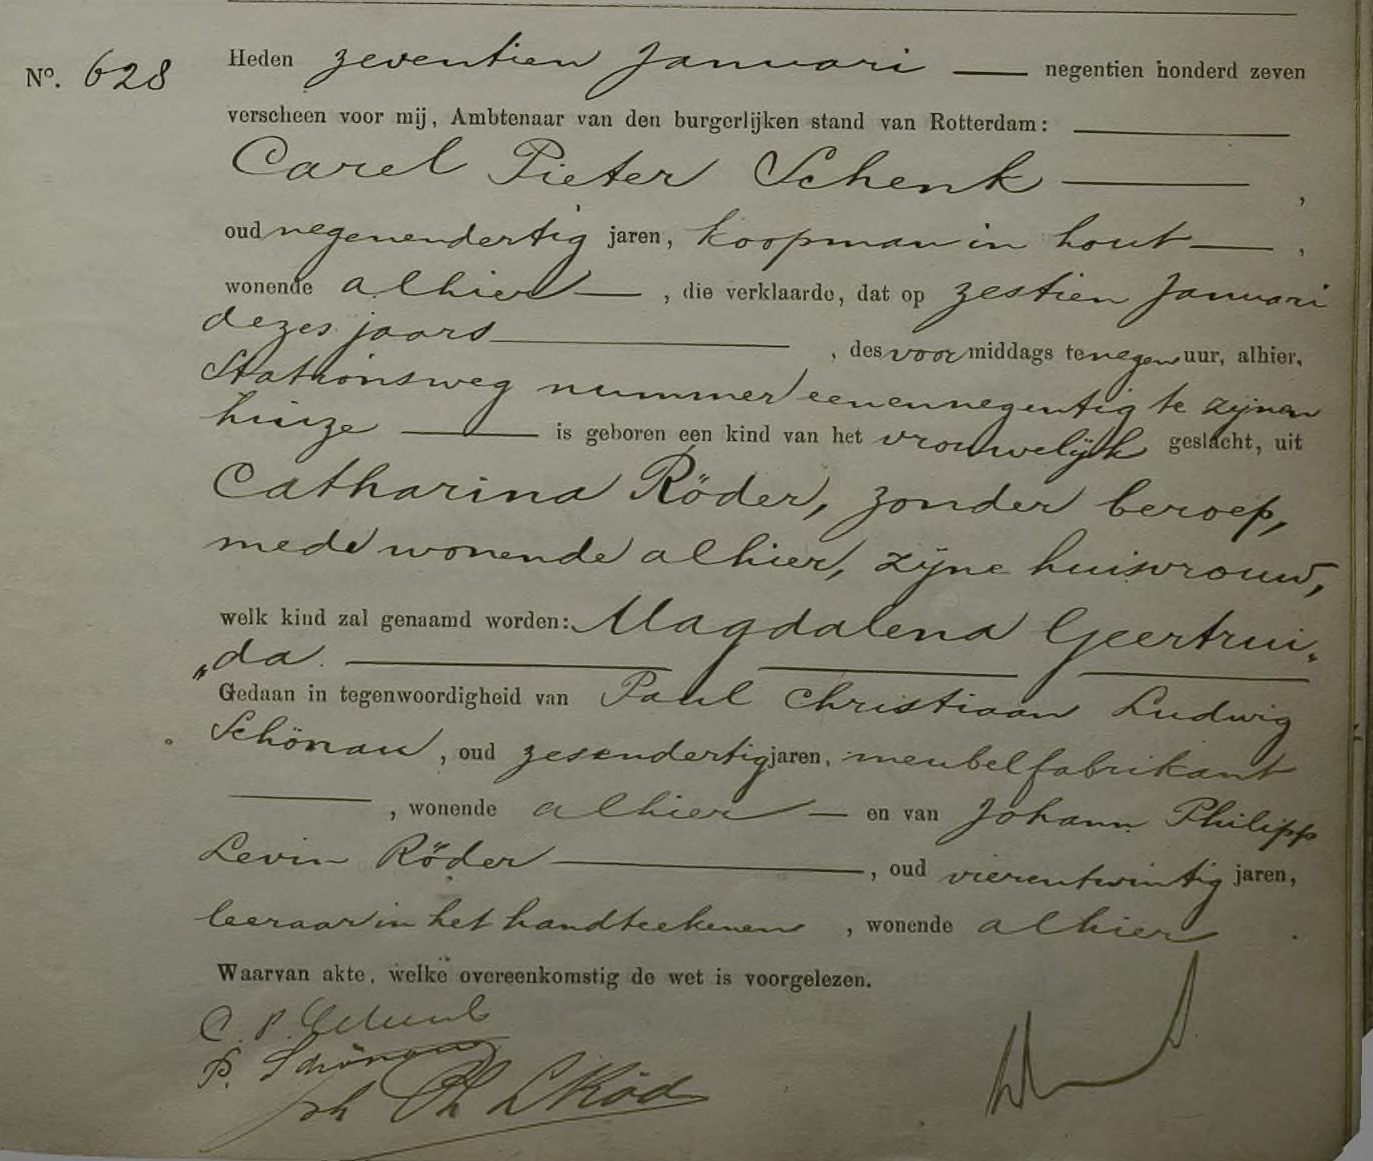 No. 628
Heden zeventien Januari negentien honderd zeven
verscheen voor mij, Ambtenaar van den burgerlijken stand van Rotterdam:
Carel Pieter Schenk ,
oud negenendertig jaren, koopman in hout ,
wonende alhier , die verklaarde, dat op zestien Januari
dezes jaars , des voormiddags te negen uur, alhier,
Stationsweg nummer eenennegentig te zijnen
huize is geboren een kind van het vrouwelijk geslacht, uit
Catharina Röder, zonder beroep,
mede wonende alhier, zijne huisvrouw,
welk kind zal genaamd worden: Magdalena Geertrui„
„da.
Gedaan in tegenwoordigheid van Paul Christiaan Ludwig
Schönau, oud zesendertig jaren, meubelfabrikant
, wonende alhier en van Johann Philipp
Levin Röder , oud vierentwintig jaren,
leeraar in het handteekenen , wonende alhier .
Waarvan akte, welke overeenkomstig de wet is voorgelezen.
C. P. Schenk
P. Schönau
Joh Ph L Röder